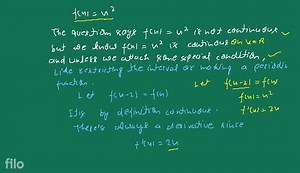 f(x) = x²
The question says f(x) = x² is not continuous
but we know f(x) = x² is continuous on x ∈ R
and unless we attach some special condition,
Like restricting the interval or making a periodic
function.
Let f(x-2) = f(x)
Let f(x-2) = f(x)
f(x) = x²
f'(x) = 2x
It is by definition continuous.
There's always a derivative since
f'(x) = 2x
filo